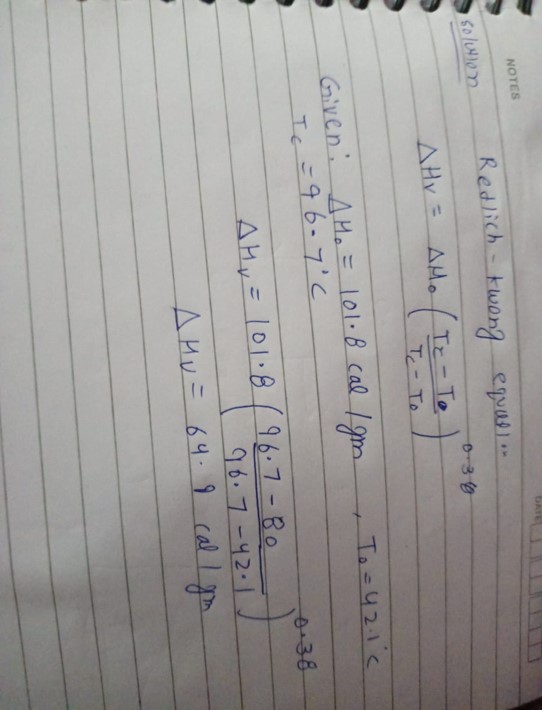 NOTES
DATE
Solution Redlich-kwong equal..
ΔHv = ΔHo (Tc - To / Tc - To)^0.38
Given: ΔHo = 101.8 cal/gm , To = 42.1°C
Tc = 96.7°C
ΔHv = 101.8 (96.7 - 80 / 96.7 - 42.1)^0.38
ΔHv = 64.9 cal/gm